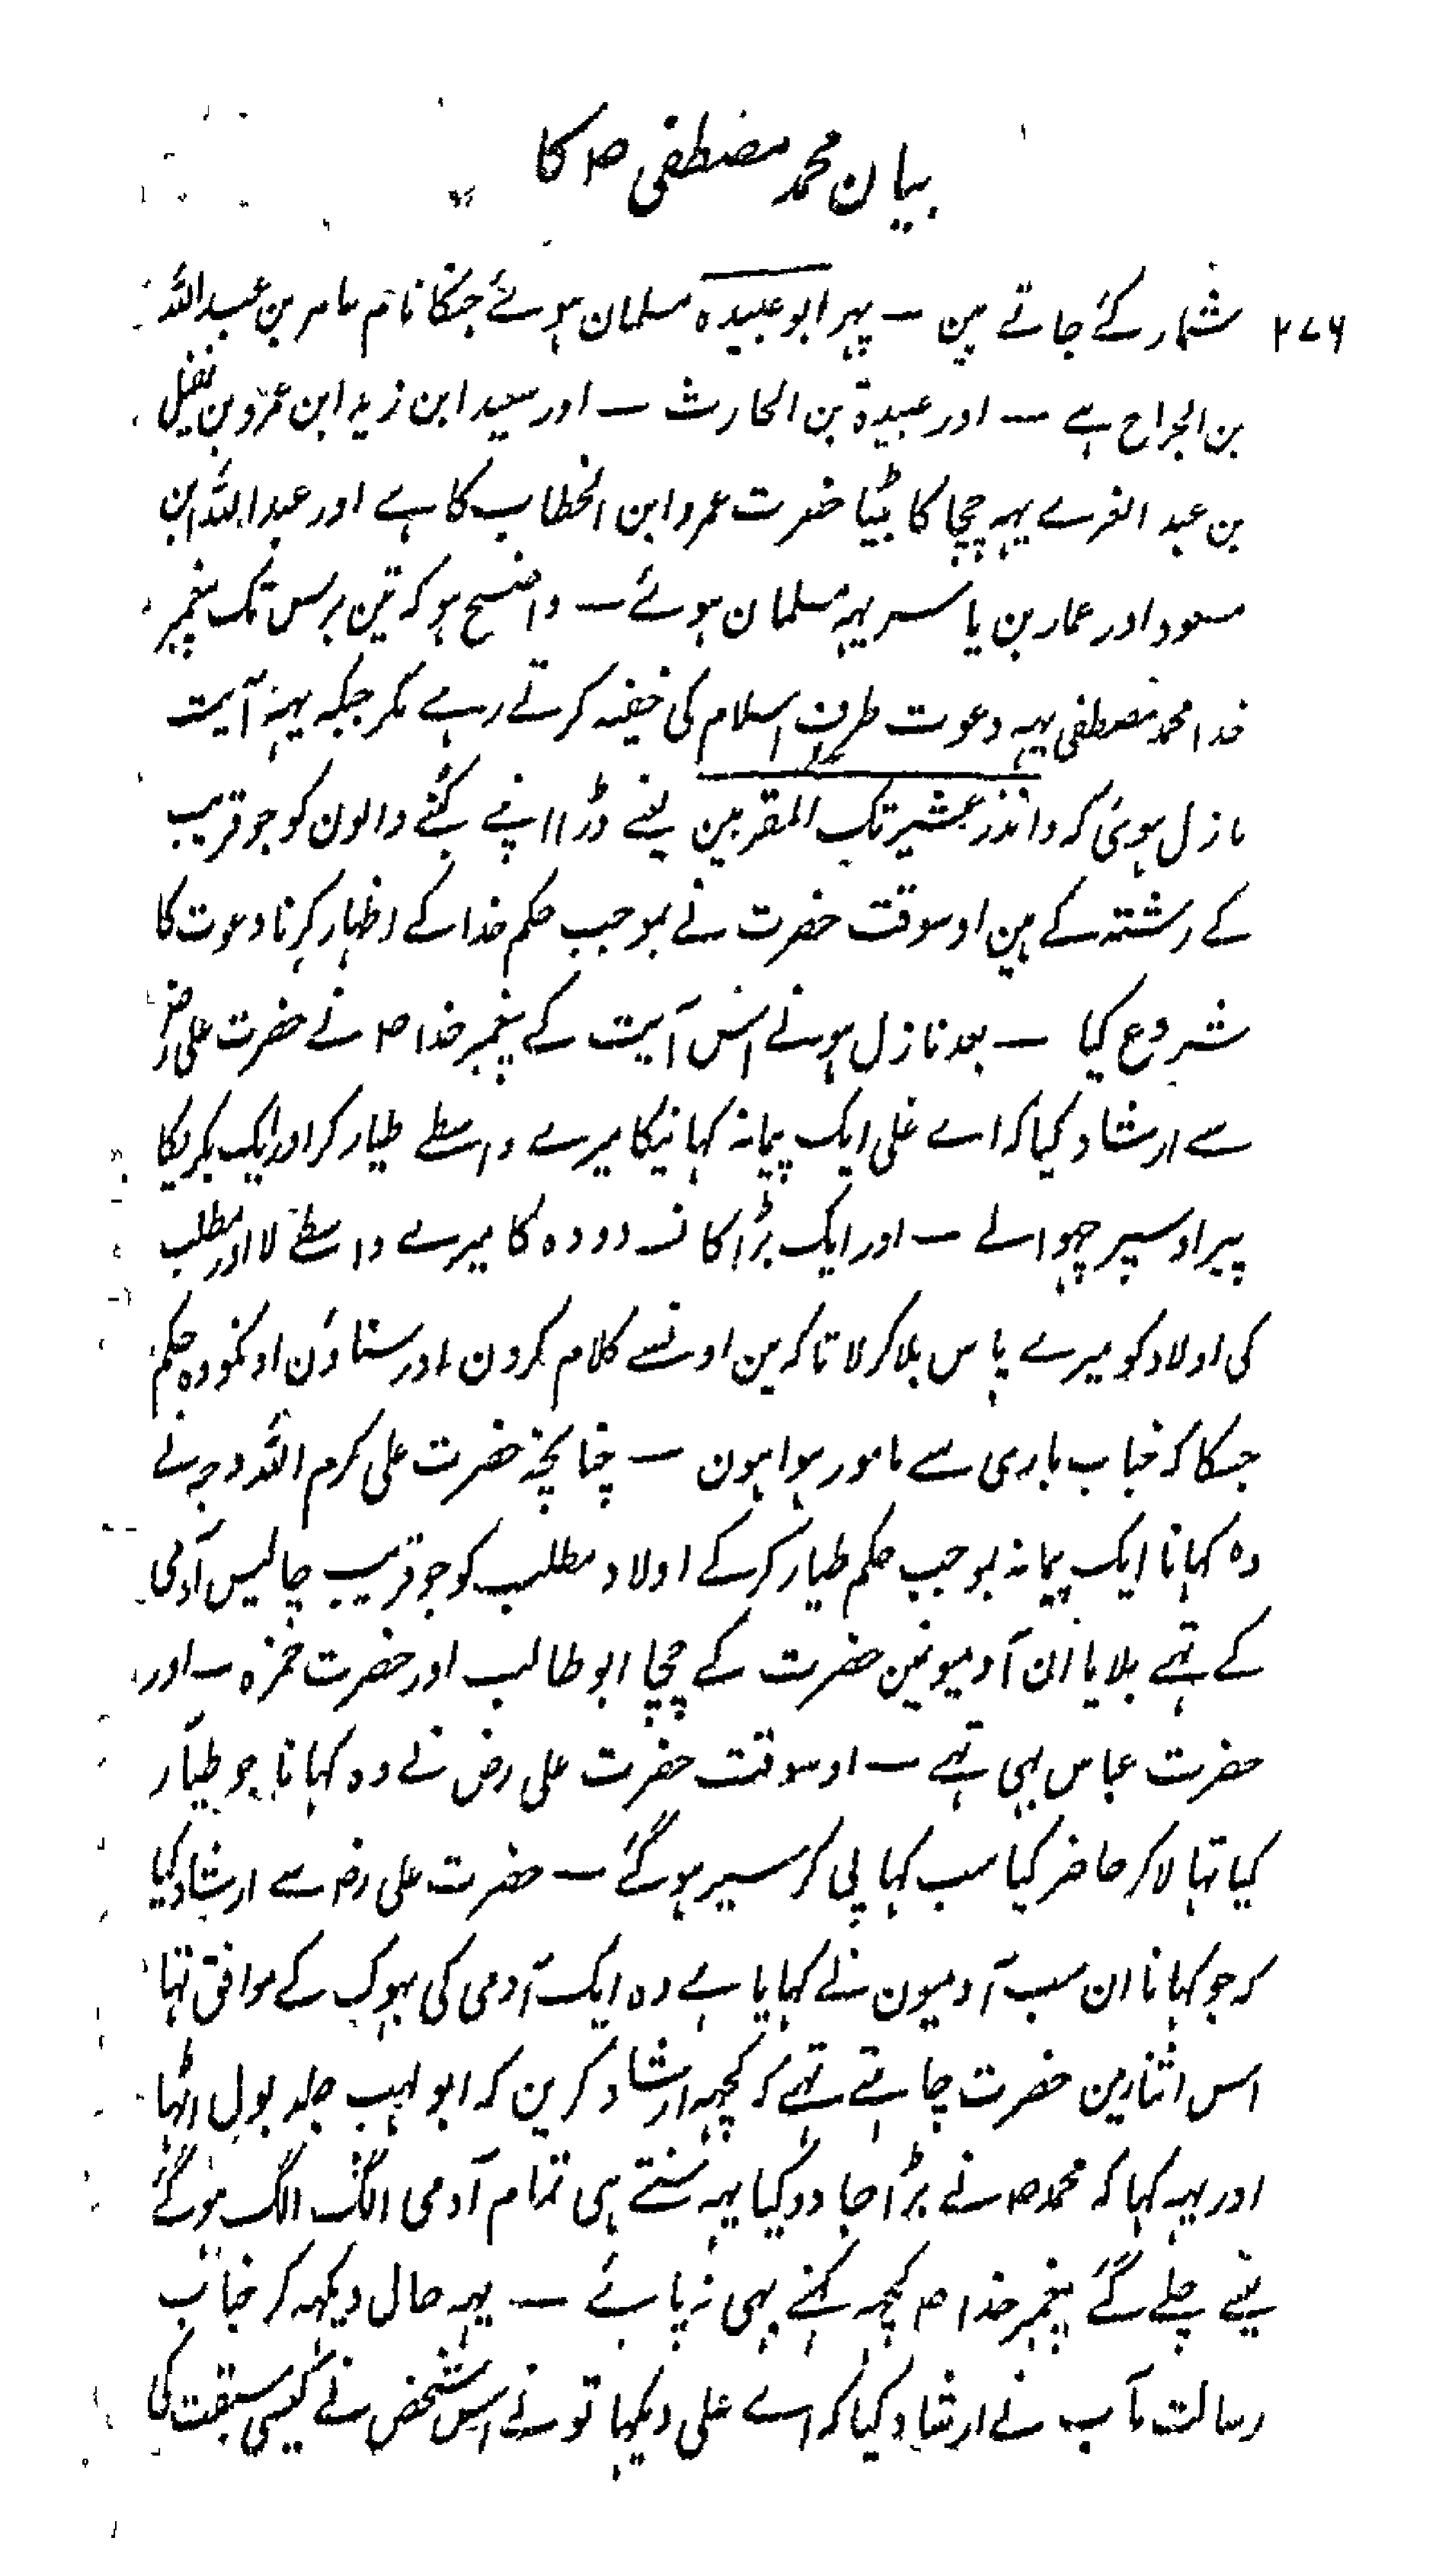 بیان محمد مصطفی ص کا
۲۷۶ شمار کئے جاتے ہین — پہر ابو عبیدہ مسلمان ہوئے جنکا نام عامر بن عبد اللہ
بن الجراح ہے — اور عبیدۃ بن الحارث — اور سعید ابن زید ابن عمرو بن نفیل
بن عبد العزے یہہ چچا کا بیٹا حضرت عمرو ابن الخطاب کا ہے اور عبد اللہ ابن
مسعود اور عمار بن یاسر یہہ مسلمان ہوئے — واضح ہو کہ تین برس تک پیغمبر
خدا محمد مصطفی یہہ دعوت طرف اسلام کی خفیہ کرتے رہے مگر جبکہ یہہ آیت
نازل ہوئی کہ وانذر عشیرتک المقربین یعنے ڈرا اپنے کنبے والون کو جو قریب
کے رشتہ کے ہین اوسوقت حضرت نے بموجب حکم خدا کے اظہار کرنا دعوت کا
شروع کیا — بعد نازل ہونے اس آیت کے پیغمبر خدا ص نے حضرت علی رض
سے ارشاد کیا کہ اے علی ایک پیمانہ کہانیکا میرے واسطے طیار کر اور ایک بکریکا
پیر اوسپر چہوالے — اور ایک بڑا کانسہ دودہ کا میرے واسطے لا اور مطلب
کی اولاد کو میرے پاس بلا کر لا تا کہ مین اونسے کلام کرون اور سناؤن اونکو وہ حکم
جسکا کہ جناب باری سے مامور ہوا ہون — چنانچہ حضرت علی کرم اللہ وجہ نے
وہ کہانا ایک پیمانہ بموجب حکم طیار کر کے اولاد مطلب کو جو قریب چالیس آدمی
کے تہے بلایا ان آدمیونمین حضرت کے چچا ابو طالب اور حضرت حمزہ — اور
حضرت عباس بہی تہے — اوسوقت حضرت علی رض نے وہ کہانا جو طیار
کیا تہا لا کر حاضر کیا سب کہا پی کر سیر ہو گئے — حضرت علی رض سے ارشاد کیا
کہ جو کہانا ان سب آدمیون نے کہایا ہے وہ ایک آدمی کی بہوک کے موافق تہا
اس اثنا مین حضرت چاہتے تہے کہ کچہہ ارشاد کرین کہ ابو لہب جلد بول اٹہا
اور یہہ کہا کہ محمد ص نے بڑا جادو کیا یہہ سنتے ہی تمام آدمی الگ الگ ہو گئے
یعنے چلے گئے پیغمبر خدا ص کچہہ کہنے بہی نہ پائے — یہہ حال دیکہہ کر جناب
رسالت مآب نے ارشاد کیا کہ اے علی دیکہا تو نے اس شخص نے کیسی سبقت کی